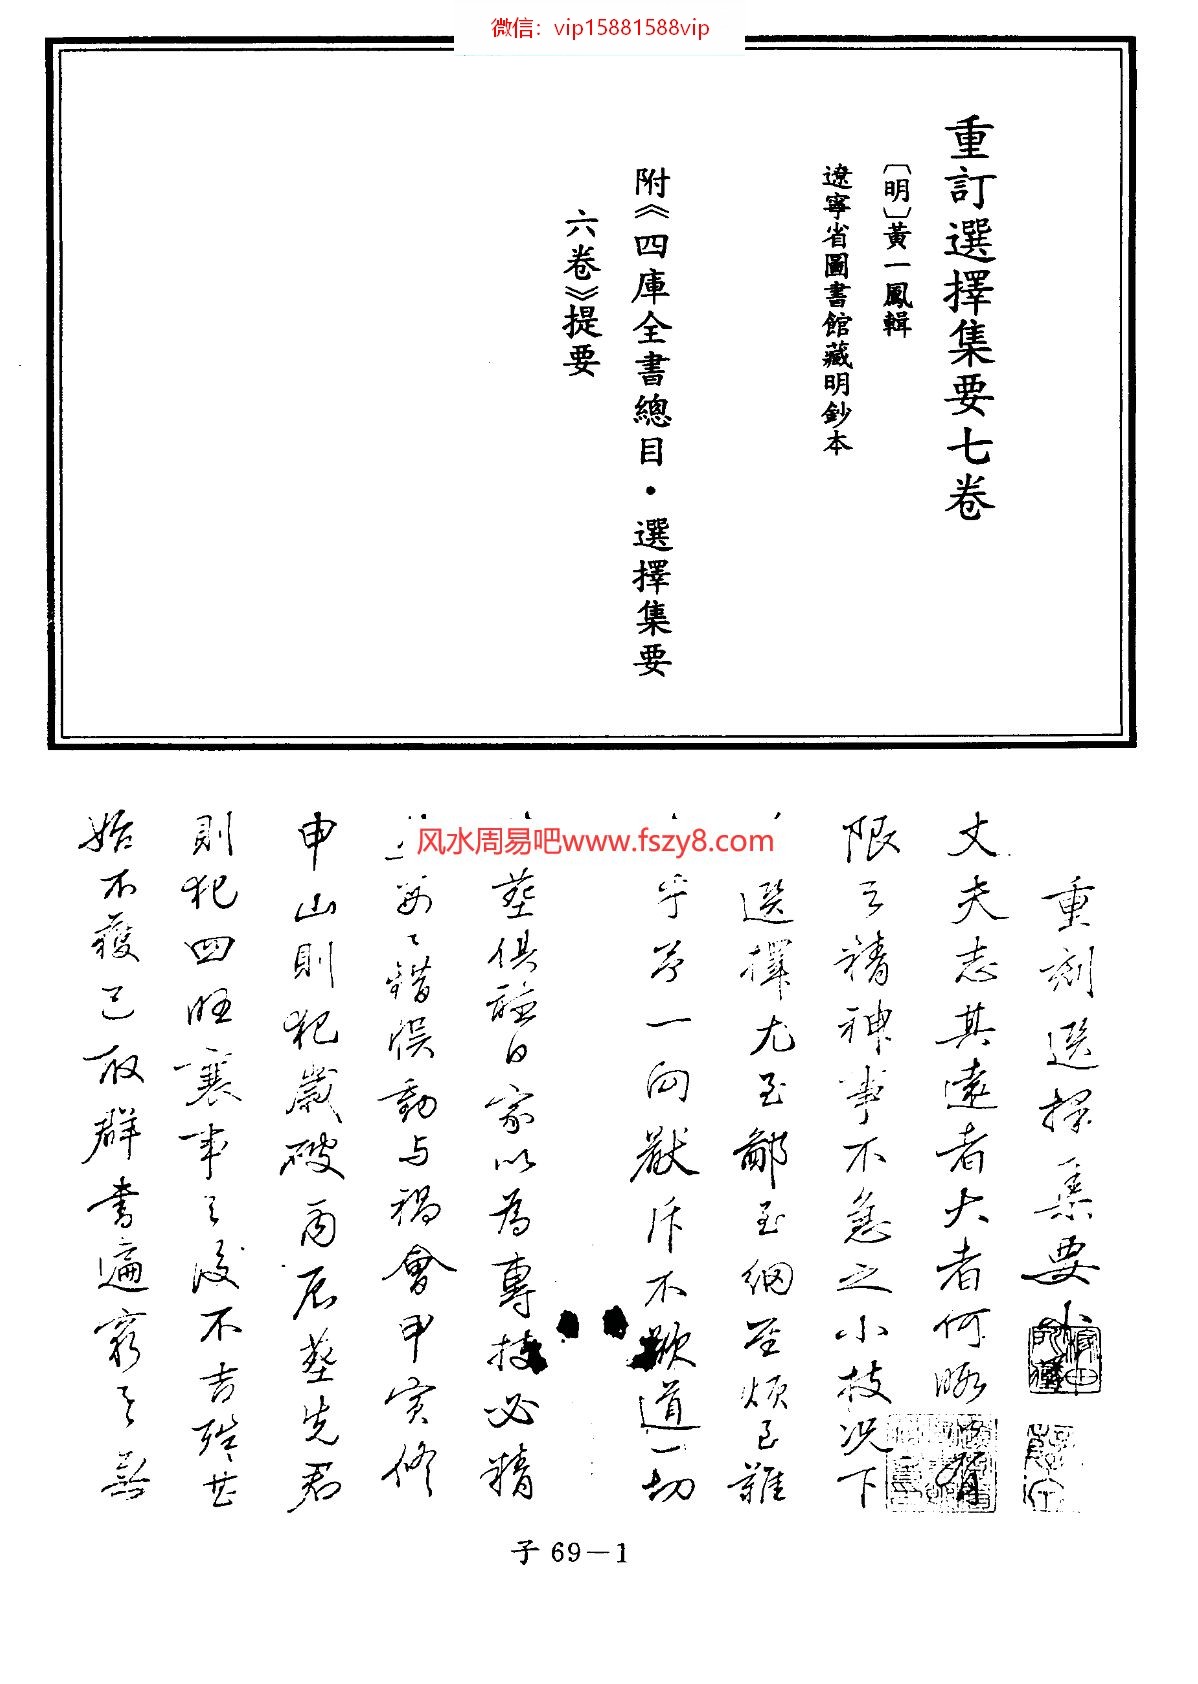 微信：vip15881588vip
重訂選擇集要七卷
〔明〕黃一鳳輯
遼寧省圖書館藏明鈔本
附《四庫全書總目·選擇集要
六卷》提要
风水周易吧www.fszy8.com
重刻選擇集要小
丈夫志其遠者大者何暇
限之精神事不急之小技况下
選擇尤至鄙至細至煩且難
乎予一向厭斥不欲道一切
葬俱諉日家以為專技必精
錯誤動与禍會甲寅修
申山則犯歲破丙辰葬先君
則犯四旺襄事之後不吉
始不獲已取群書遍窮之
子69－1